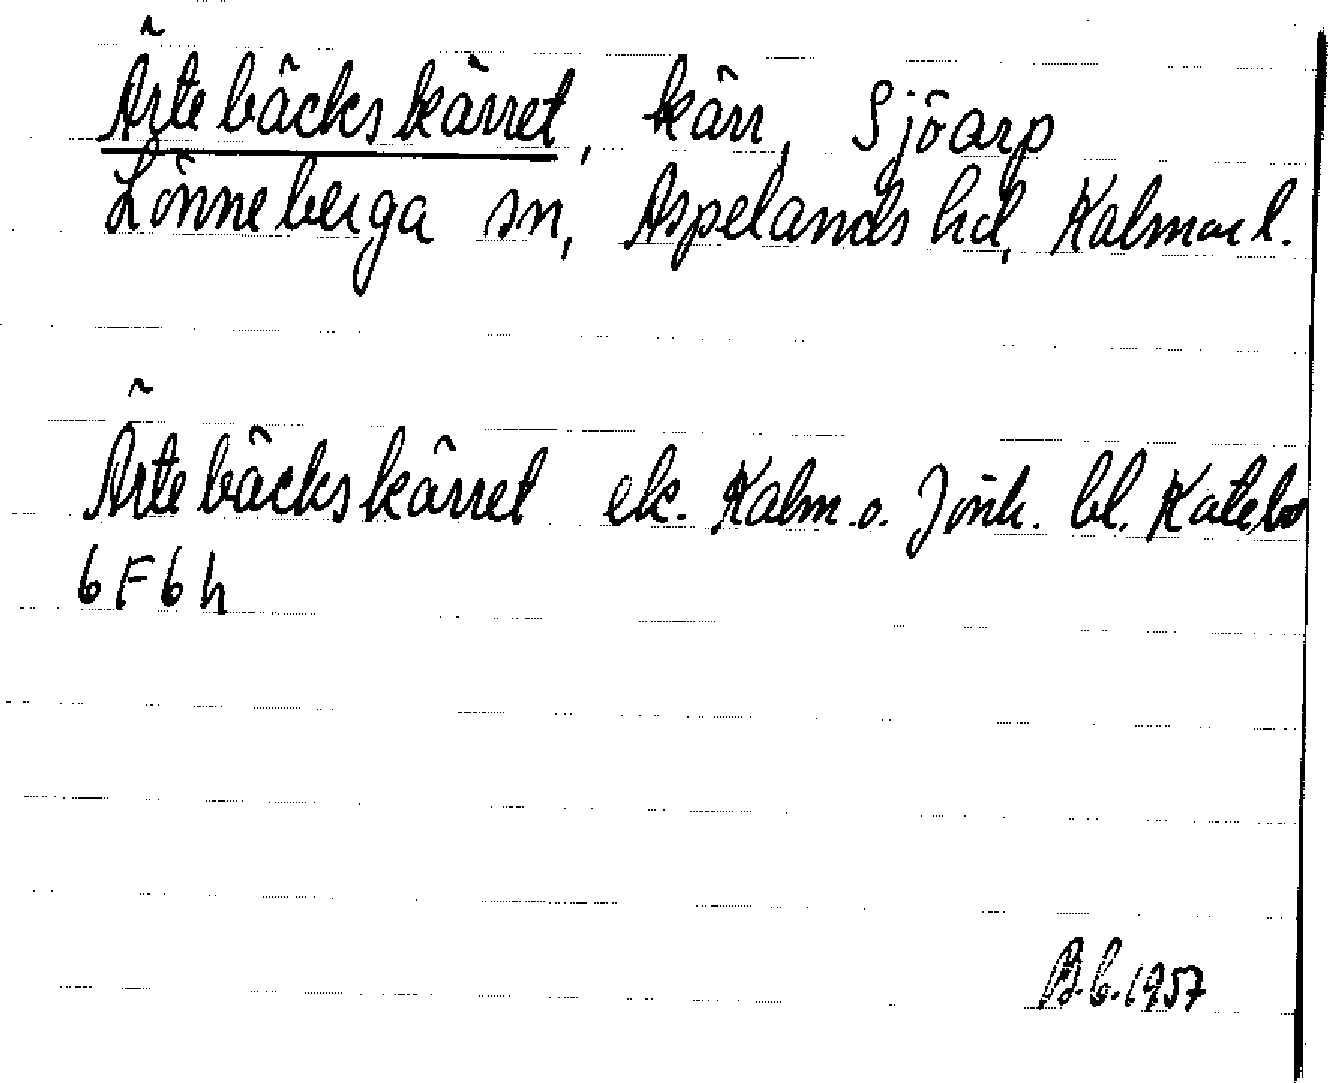 Ärtebäckskärret, kärr, Sjöarp
Lönneberga sn, Aspelands hd, Kalmar l.
Ärtebäckskärret ek. Kalm. o. Jönk. bl. Katebo
6F6h
B.b. 1957